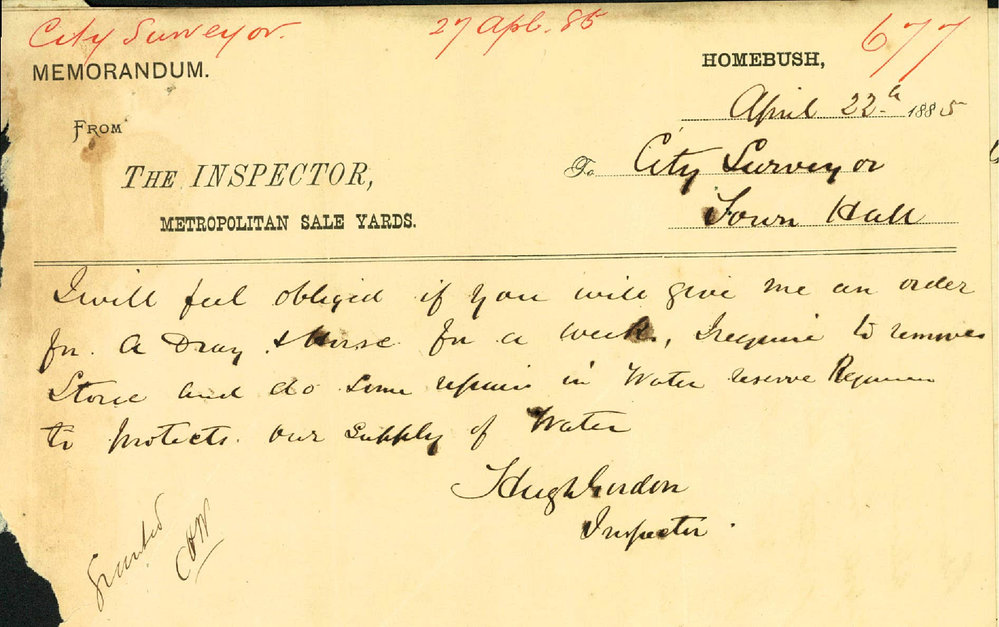 City Surveyor. 27 Apl. 85 677
MEMORANDUM.
HOMEBUSH,
April 22 1885
FROM
THE INSPECTOR,
METROPOLITAN SALE YARDS.
To City Surveyor
Town Hall
I will feel obliged if you will give me an order
for. A Dray & Horse for a week, I require to remove
Stone and do some repairs in Water reserve
to protects our supply of Water
Hugh Gordon
Inspector.
Granted